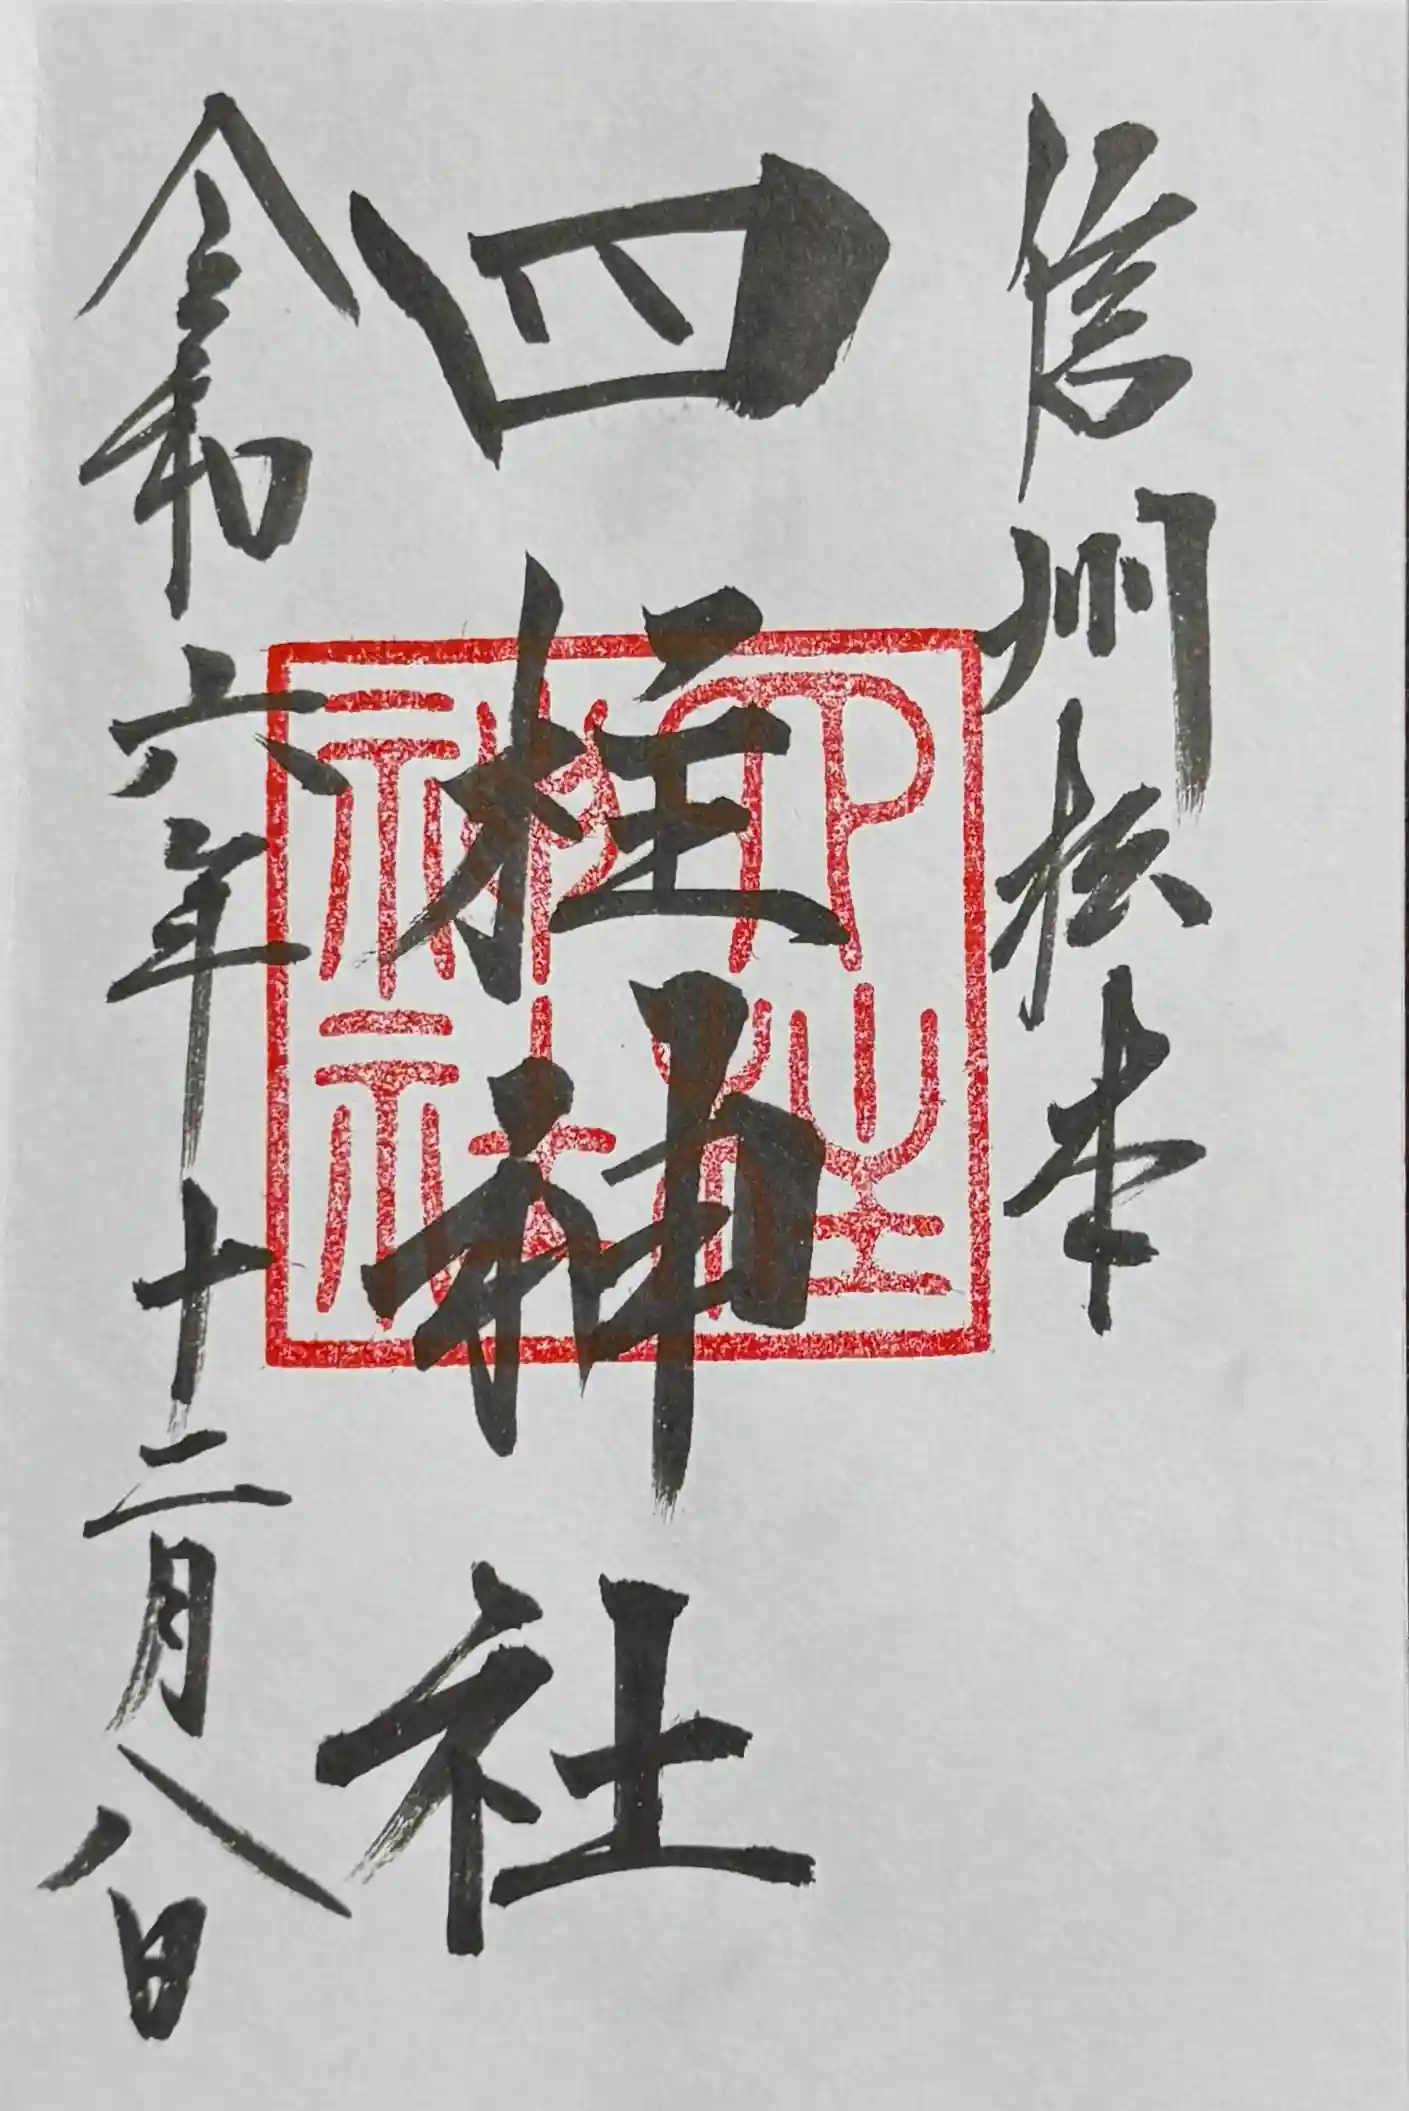 信州松本
四柱神社
令和六年十二月八日
四柱神社